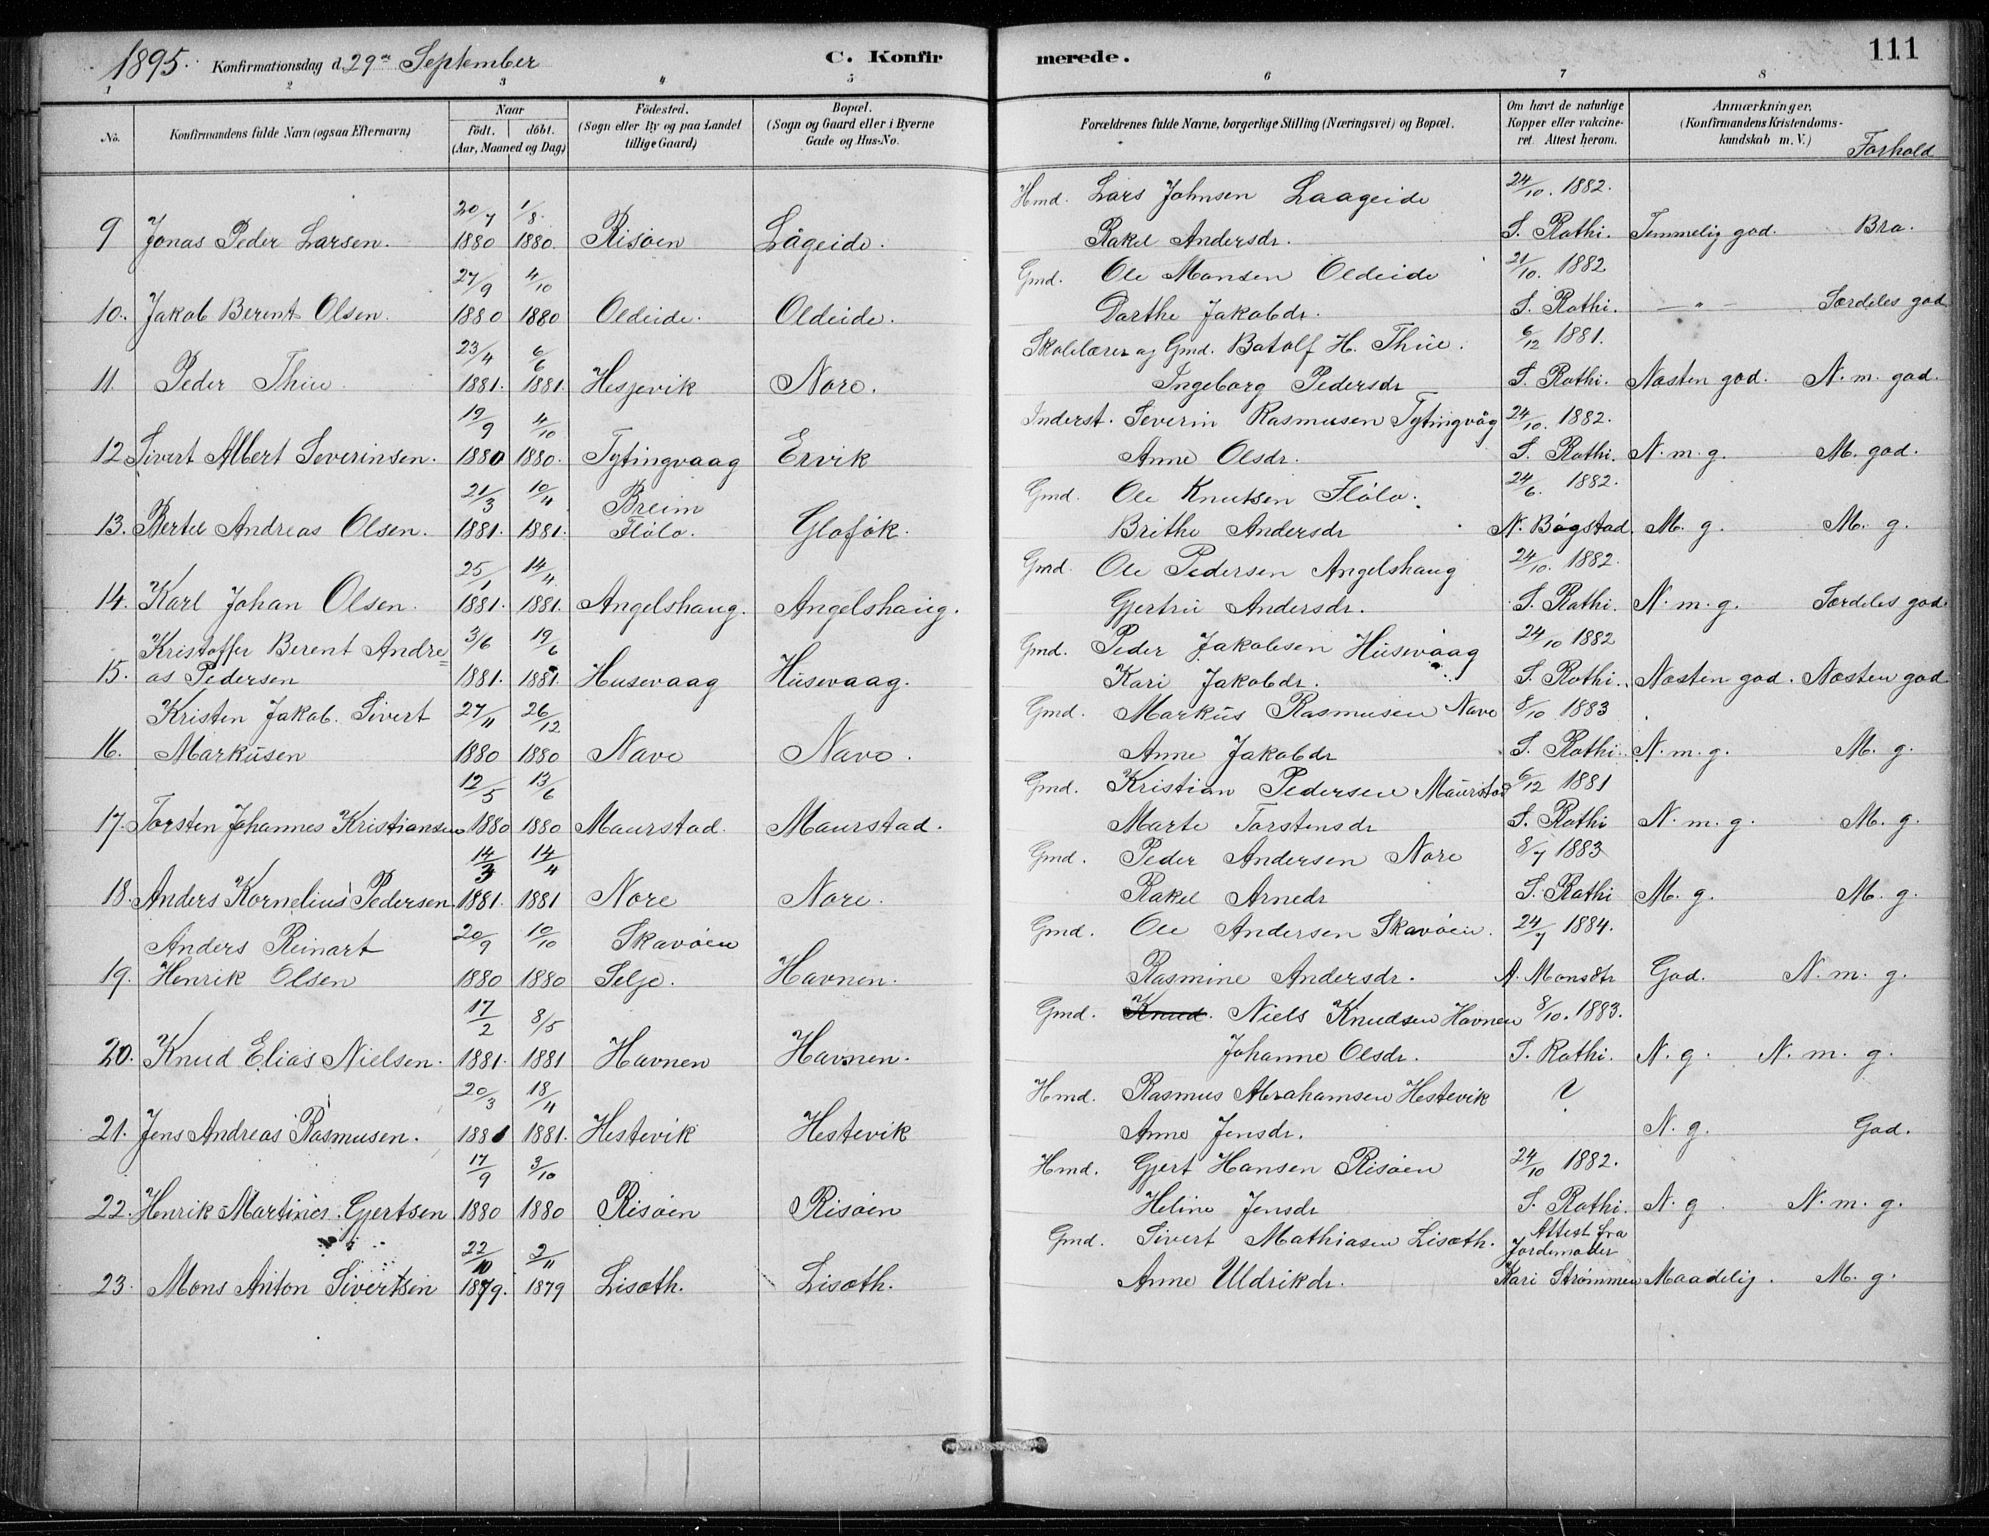 1895. Konfirmationsdag d. 29de September C. Konfirmerede. 111
1 2 3 4 5 6 7 8
No. Konfirmandens fulde Navn (ogsaa Efternavn) Naar født. døbt. (Aar, Maaned og Dag) Fødested. (Sogn eller By og paa Landet tillige Gaard) Bopæl. (Sogn og Gaard eller i Byerne Gade og Hus-No. Forældrenes fulde Navne, borgerlige Stilling (Næringsvei) og Bopæl. Om havt de naturlige Kopper eller vakcineret. Attest herom. Anmærkninger, (Konfirmandens Kristendomskundskab m. V.) Forhold
20/7 1/8 Hmd. Lars Johnsen Laageide 24/10. 1882.
9 Jonas Peder Larsen. 1880 1880. Risøen Lågeide. Rakel Andersdr. S. Rathi. Temmelig god. Bra.
27/9 4/10 Gmd. Ole Monsen Oldeide 21/10. 1882
10. Jakob Berent Olsen. 1880 1880 Oldeide. Oldeide. Dorthe Jakobdr. S. Rathi. — " — Særdeles god
23/4 6/6 Skolelærer og Gmd. Batolf H. Thue. 6/12 1881.
11. Peder Thue. 1881. 1881. Hesjevik Nore. Ingeborg Pedersdr S. Rathi. Næsten god. N. m. god.
19/9 4/10 Inderst. Severin Rasmusen Tytingvåg 24/10. 1882.
12 Sivert Albert Severinsen. 1880 1880. Tytingvaag Ervik Anne Olsdr. S. Rathi. N. m. g. M. god.
21/3 10/4 Breim Gmd. Ole Knutsen Flølo. 24/6. 1882.
13. Bertel Andreas Olsen. 1881. 1881. Flølo. Gloføk. Brithe Andersdr N. Bøgstad. M. g. M. g.
25/1 14/4 Gmd. Ole Pedersen Angelshaug 24/10. 1882.
14. Karl Johan Olsen. 1881. 1881. Angelshaug. Angelshaug. Gjertru Andersdr. S. Rathi. N. m. g. Særdeles god
Kristoffer Berent Andre= 3/6 19/6 Gmd. Peder Jakobsen Husevaag 24/10 1882
15. as Pedersen 1881. 1881. Husevaag Husevaag. Kari Jakobdr. S. Rathi. Næsten god. Næsten god
Kristen Jakob. Sivert 27/11 26/12 Gmd. Markus Rasmusen Nave 8/10 1883
16. Markusen 1880 1880 Nave Nave. Anne Jakobdr S. Rathi. N. m. g. M. g.
12/5 13/6 Gmd. Kristian Pedersen Maurstad 6/12 1881
17. Torsten Johannes Kristiansen 1880 1880 Maurstad. Maurstad. Marte Torstensdr S. Rathi N. m. g. M. g.
14/3 14/4 Gmd. Peder Andersen Nore 8/7 1883
18. Anders Kornelius Pedersen 1881. 1881 Nore Nore. Rakel Arnedr S. Rathi M. g. M. g.
Anders Reinart 20/9 10/10 Skavøen Gmd. Ole Andersen Skavøen. 24/7 1884.
19. Henrik Olsen 1880 1880 Selje. Havnen. Rasmine Andersdr. A. Monsdtr God. N. m. g.
17/2 8/5 Gmd. Knud. Niels Knudsen Havnen 8/10. 1883.
20. Knud Elias Nielsen. 1881. 1881 Havnen Havnen. Johanne Olsdr. S. Rathi. N. g. N. m. g.
20/3 18/4 Hmd. Rasmus Abrahamsen Hestevik ?
21. Jens Andreas Rasmusen. 1881 1881. Hestevik Hestevik Anne Jensdr. N. g. God.
17/9 3/10 Hmd. Gjert Hansen Risøen 24/10 1882.
22. Henrik Martinus. Gjertsen 1880 1880 Risøen Risøen Heline Jensdr S. Rathi. N. g. N. m. g.
22/10 2/11 Gmd. Sivert Mathiasen Lisæth. Attest fra Jordemoder
23. Mons Anton Sivertsen 1879. 1879 Lisæth. Lisæth. Anne Uldrikdr. Kari Strømmen Maadelig. M. g.